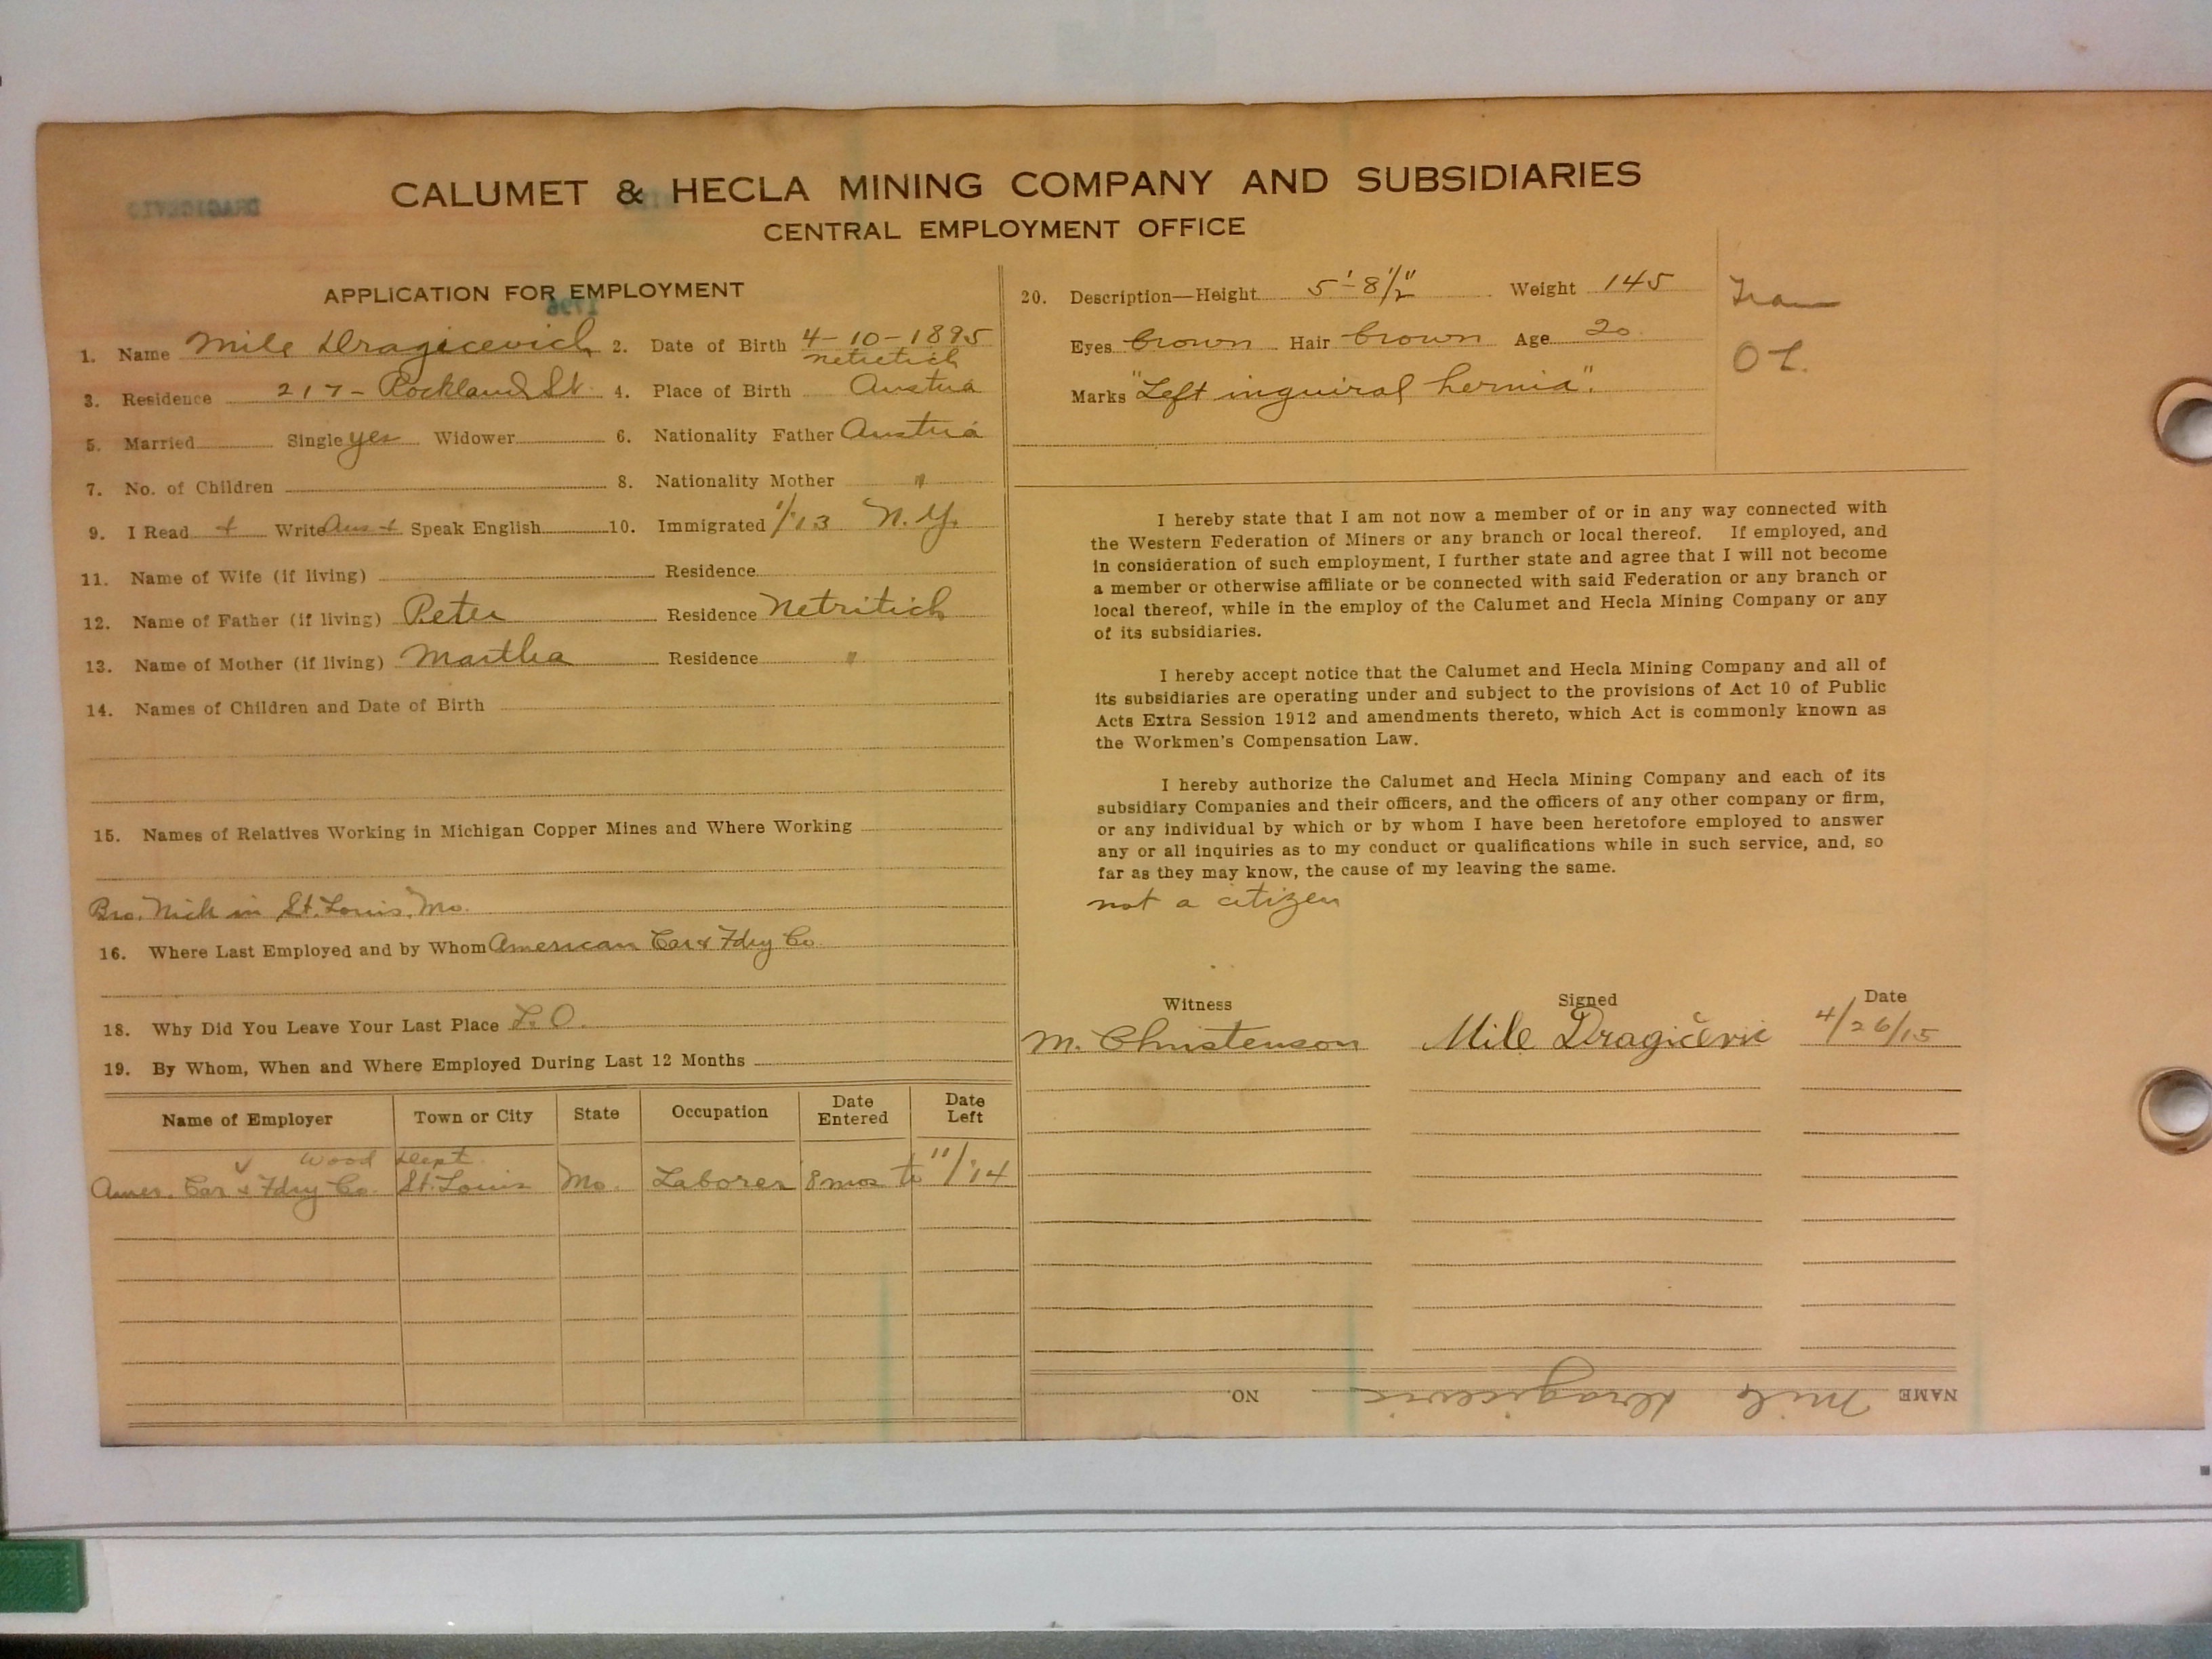 CALUMET & HECLA MINING COMPANY AND SUBSIDIARIES
CENTRAL EMPLOYMENT OFFICE
APPLICATION FOR EMPLOYMENT
1. Name Mile Dragicevich 2. Date of Birth 4-10-1895
netretich
3. Residence 217- Rockland St. 4. Place of Birth Austria
5. Married Single yes Widower 6. Nationality Father Austria
7. No. of Children 8. Nationality Mother "
9. I Read + Write Aus + Speak English 10. Immigrated 1/13 N.Y.
11. Name of Wife (if living) Residence
12. Name of Father (if living) Peter Residence Netritich
13. Name of Mother (if living) Martha Residence "
14. Names of Children and Date of Birth
15. Names of Relatives Working in Michigan Copper Mines and Where Working
Bro. Nick in St. Louis, Mo.
16. Where Last Employed and by Whom American Car & Fdry Co
18. Why Did You Leave Your Last Place L.O.
19. By Whom, When and Where Employed During Last 12 Months
Name of Employer Town or City State Occupation Date Entered Date Left
Wood Dept.
Amer. Car & Fdry Co. St. Louis Mo. Laborer 8 mos to 11/14
20. Description—Height 5'-8 1/2" Weight 145
Eyes brown Hair brown Age 20
Marks "Left inguiral hernia".
Tram
O.L.
I hereby state that I am not now a member of or in any way connected with
the Western Federation of Miners or any branch or local thereof. If employed, and
in consideration of such employment, I further state and agree that I will not become
a member or otherwise affiliate or be connected with said Federation or any branch or
local thereof, while in the employ of the Calumet and Hecla Mining Company or any
of its subsidiaries.
I hereby accept notice that the Calumet and Hecla Mining Company and all of
its subsidiaries are operating under and subject to the provisions of Act 10 of Public
Acts Extra Session 1912 and amendments thereto, which Act is commonly known as
the Workmen's Compensation Law.
I hereby authorize the Calumet and Hecla Mining Company and each of its
subsidiary Companies and their officers, and the officers of any other company or firm,
or any individual by which or by whom I have been heretofore employed to answer
any or all inquiries as to my conduct or qualifications while in such service, and, so
far as they may know, the cause of my leaving the same.
not a citizen
Witness Signed Date
M. Christenson Mile Dragičevic 4/26/15
NAME Mile Dragicevic NO.